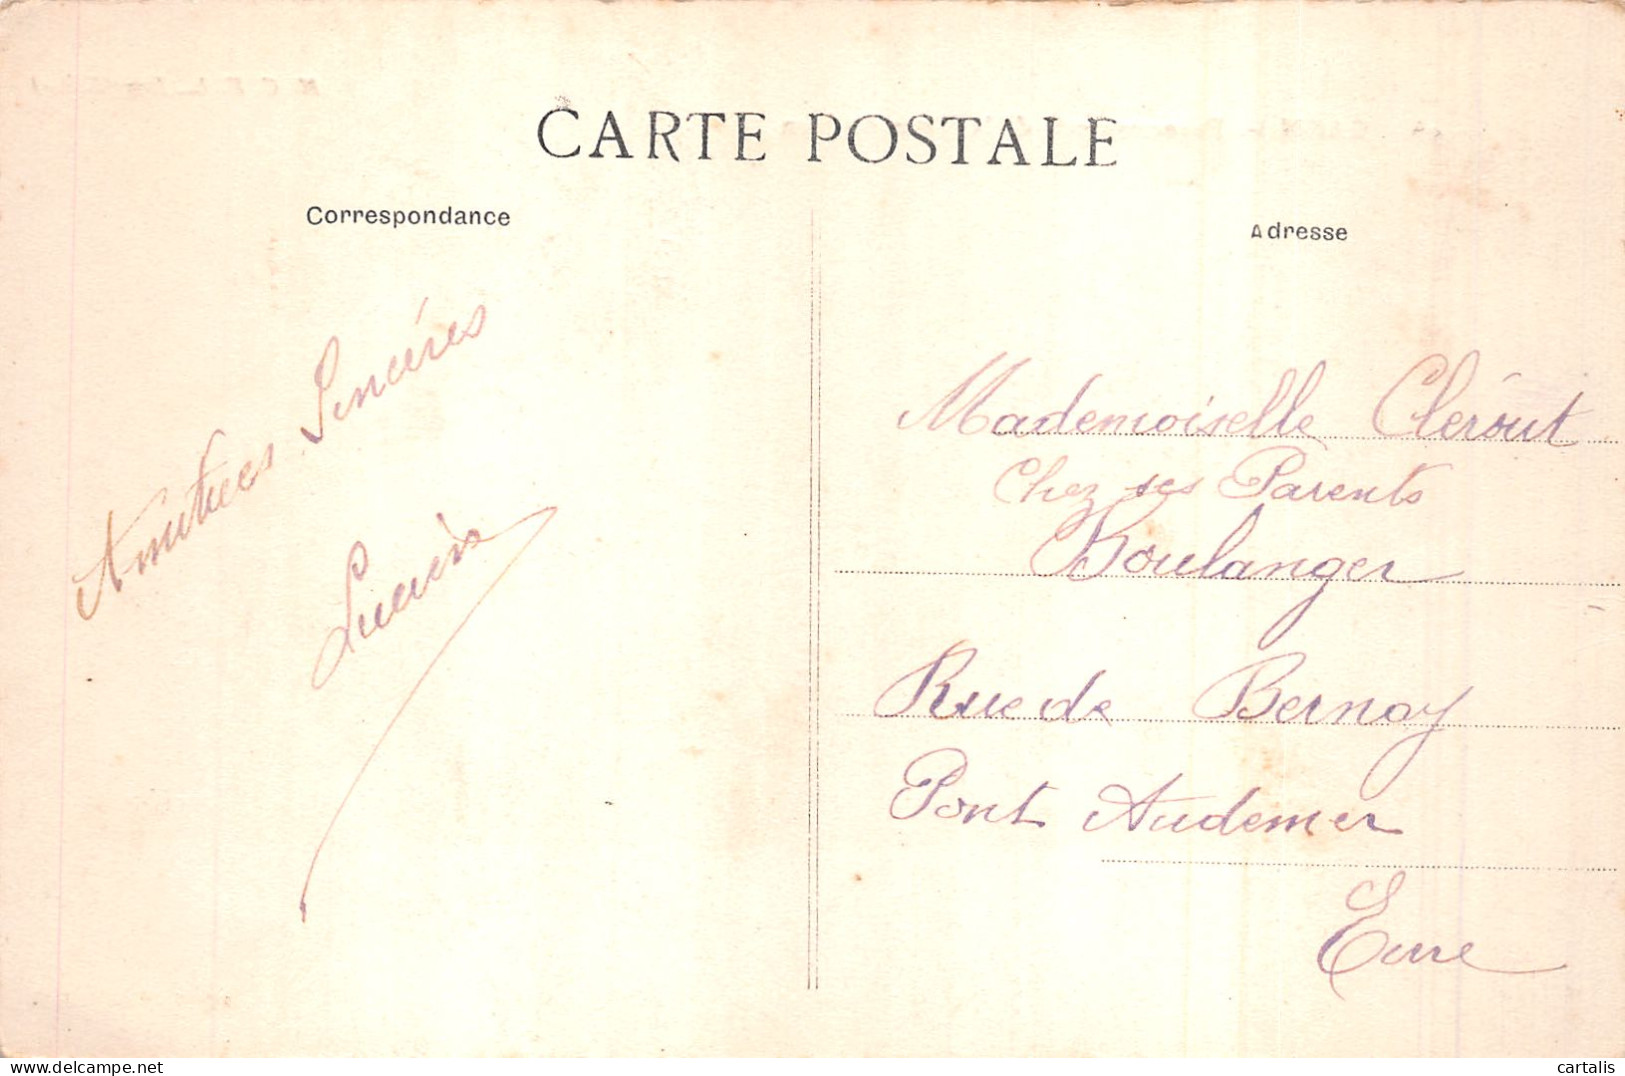 CARTE POSTALE
Correspondance
Amitiées Sincéres
Lucien
Adresse
Mademoiselle Clérout
Chez ses Parents
Boulanger
Rue de Bernay
Pont Audemer
Eure
www.delcampe.net
cartalis